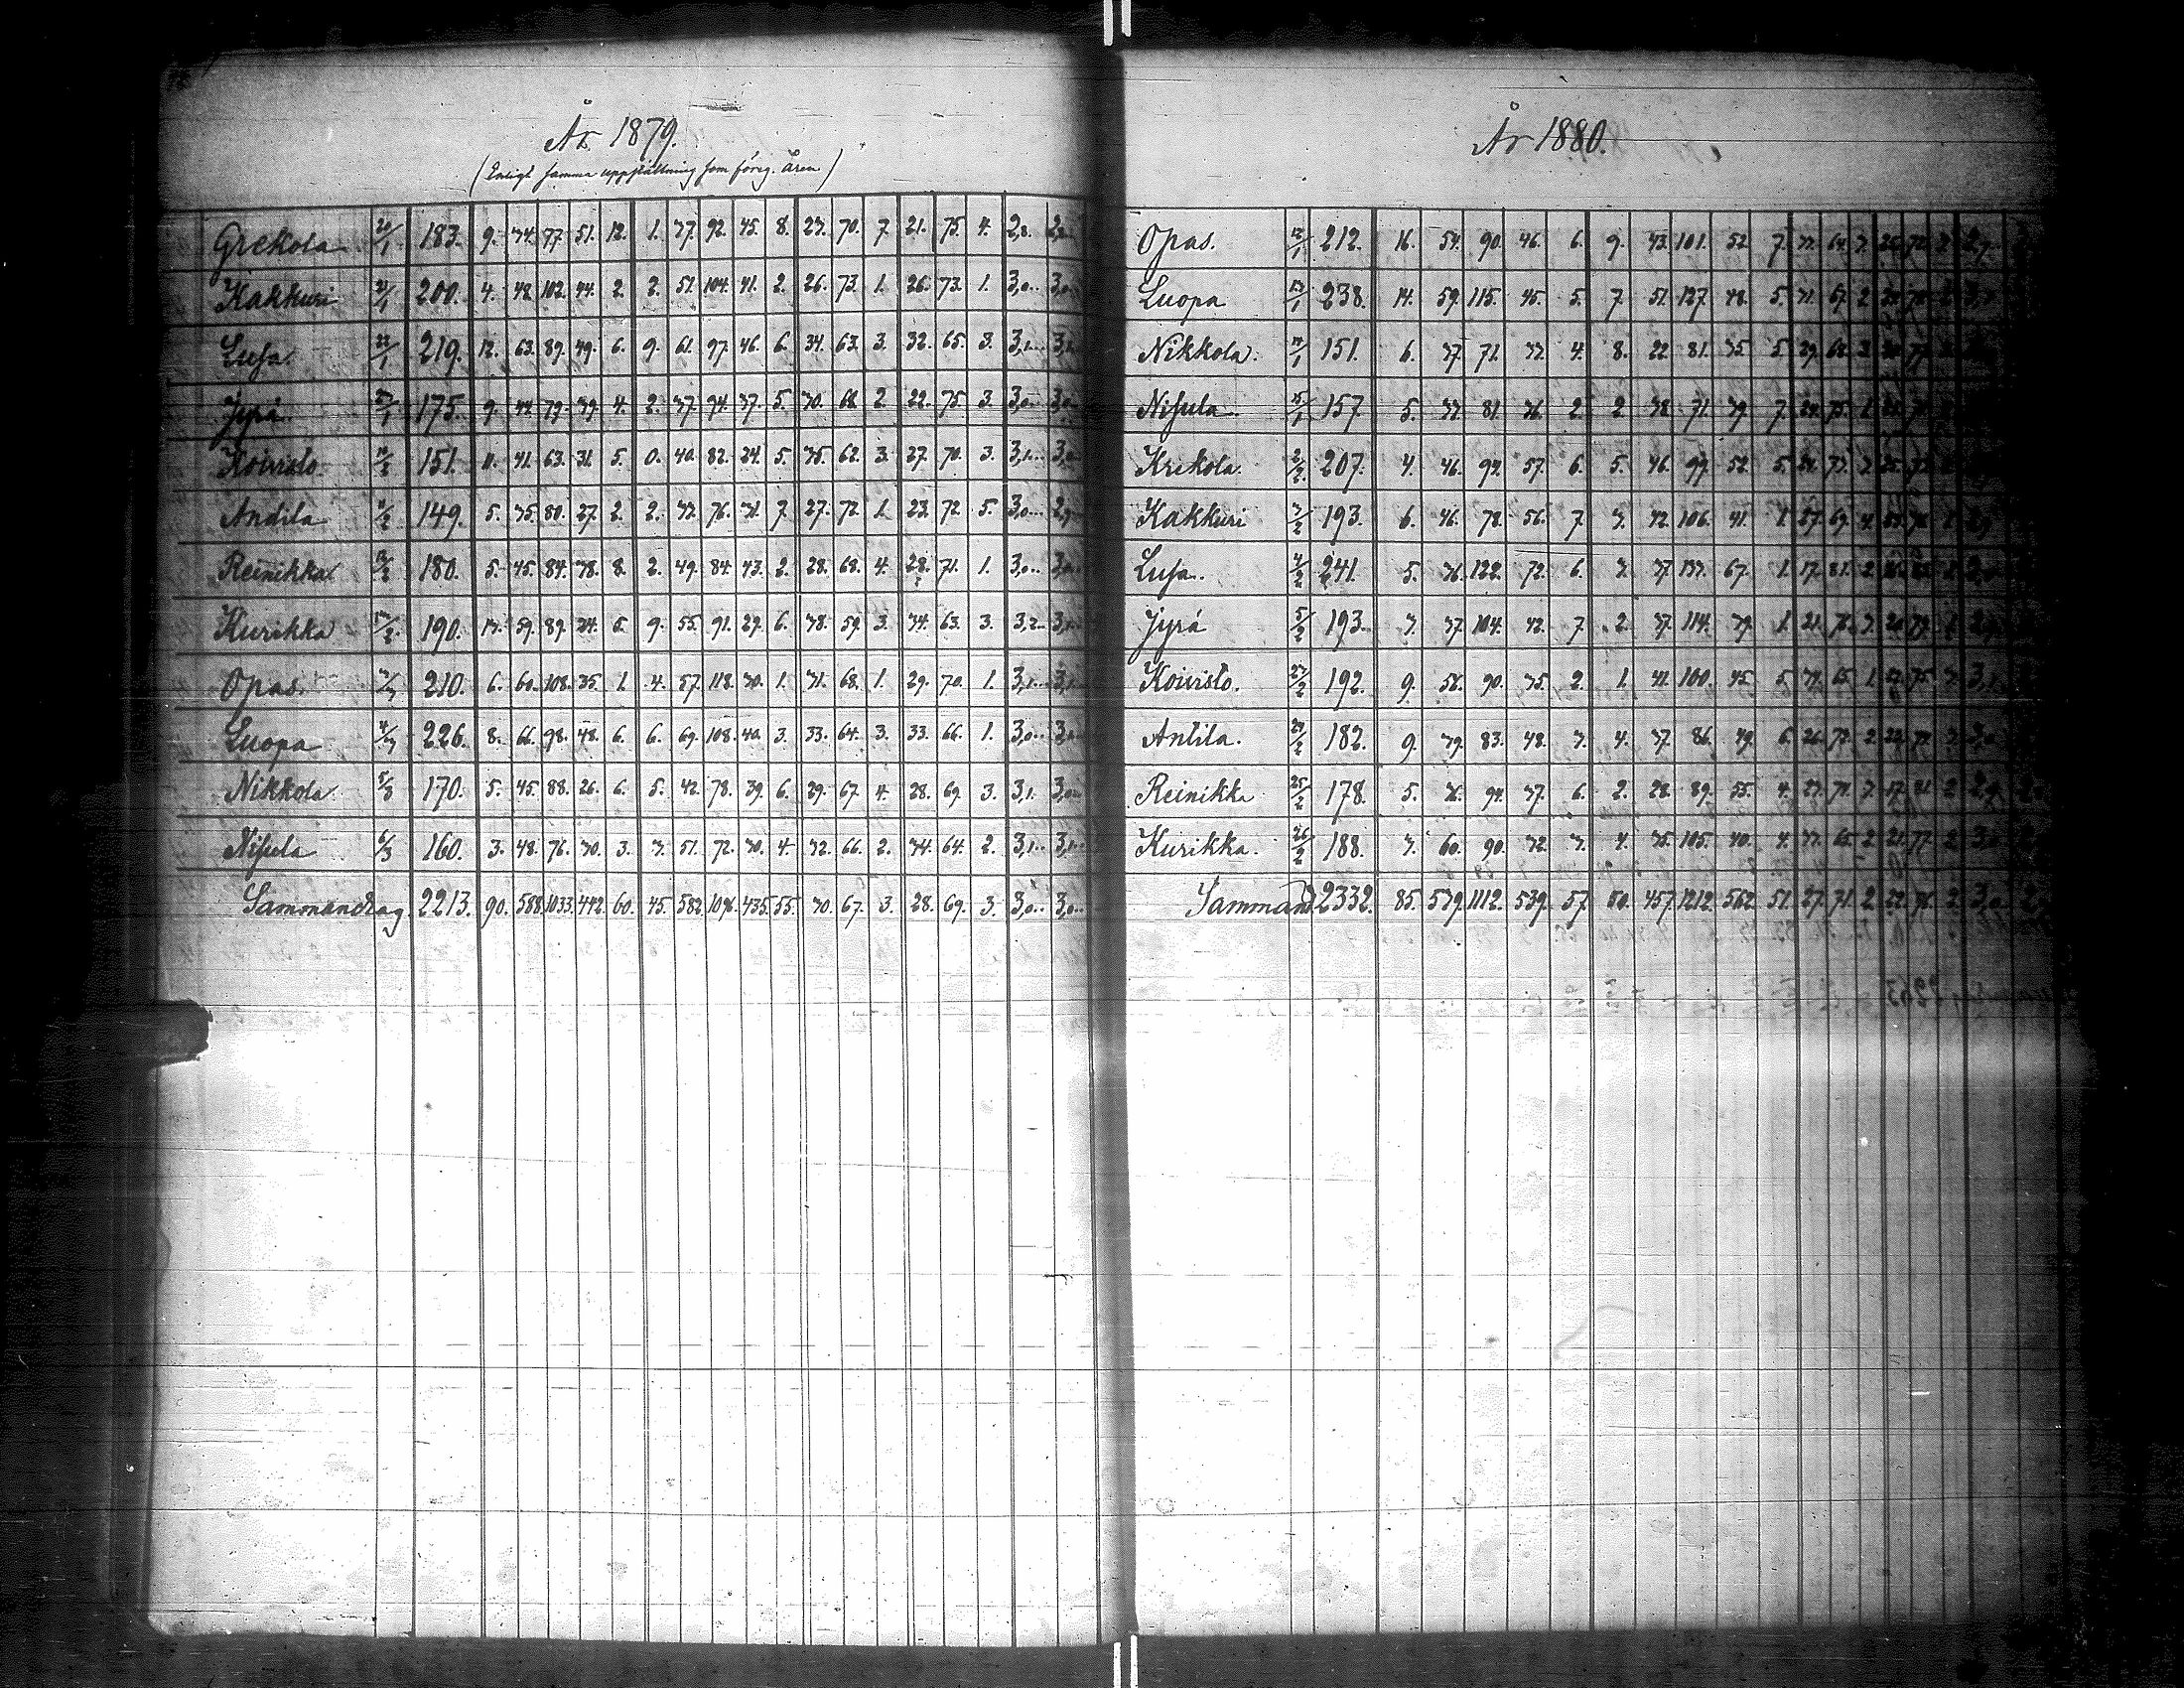 År 1879.
(Enligt samma uppställning som föreg. åren)
Grekola 20/1 183. 9. 34. 77. 51. 12. 1. 37. 92. 45. 8. 23. 70. 7. 21. 75. 4. 2,8..
Kakkuri 21/1 200. 4. 48. 102. 44. 2. 2. 51. 104. 41. 2. 26. 73. 1. 26. 73. 1. 3,0.. 3,0..
Lusa 22/1 219. 12. 63. 89. 49. 6. 9. 61. 97. 46. 6. 34. 63. 3. 32. 65. 3. 3,1.. 3,1..
Jyrä 23/1 175. 9. 44. 79. 39. 4. 2. 37. 94. 37. 5. 30. 68. 2. 22. 75. 3. 3,0.. 3,0..
Koivisto 151. 11. 41. 63. 31. 5. 0. 40. 82. 24. 5. 35. 62. 3. 27. 70. 3. 3,1.. 3,0..
Andila 149. 5. 35. 80. 27. 2. 2. 32. 76. 32. 7. 27. 72. 1. 23. 72. 5. 3,0.. 2,9..
Reinikka 180. 5. 45. 84. 38. 8. 2. 49. 84. 43. 2. 28. 68. 4. 28. 71. 1. 3,0.. 3,0..
Kurikka 190. 13. 59. 89. 24. 5. 9. 55. 91. 29. 6. 38. 59. 3. 34. 63. 3. 3,2.. 3,1..
Opas. 3/3 210. 6. 60. 108. 35. 1. 4. 57. 118. 30. 1. 31. 68. 1. 29. 70. 1. 3,1.. 3,1..
Luopa 4/3 226. 8. 66. 98. 48. 6. 6. 69. 108. 40. 3. 33. 64. 3. 33. 66. 1. 3,0.. 3,1..
Nikkola 5/3 170. 5. 45. 88. 26. 6. 5. 42. 78. 39. 6. 29. 67. 4. 28. 69. 3. 3,1. 3,0..
Nisula 6/3 160. 3. 48. 76. 30. 3. 3. 51. 72. 30. 4. 32. 66. 2. 34. 64. 2. 3,1.. 3,1..
Sammandrag 2213. 90. 588. 1033. 442. 60. 45. 582. 1096. 435. 55. 30. 67. 3. 28. 69. 3. 3,0.. 3,0..
År 1880.
Opas. 12/1 212. 16. 54. 90. 46. 6. 9. 43. 101. 52. 7. 33. 64. 3.
Luopa 13/1 238. 14. 59. 115. 45. 5. 7. 51. 127. 48. 5. 31. 67. 2.
Nikkola. 14/1 151. 6. 37. 71. 33. 4. 8. 22. 81. 35. 5. 29. 68. 3.
Nisula 15/1 157. 5. 33. 81. 36. 2. 2. 38. 71. 39. 7. 24. 75. 1.
Krekola 2/2 207. 4. 46. 94. 57. 6. 5. 46. 99. 52. 5. 24. 73. 3.
Kakkuri 3/2 193. 6. 46. 78. 56. 7. 3. 42. 106. 41. 1. 27. 69. 4.
Lusa. 4/2 241. 5. 36. 122. 72. 6. 3. 37. 133. 67. 1. 17. 81. 2.
Jyrä 5/2 193. 3. 37. 104. 42. 7. 2. 37. 114. 39. 1. 21. 76. 3.
Koivisto. 23/2 192. 9. 56. 90. 35. 2. 1. 41. 100. 45. 5. 34. 65. 1.
Antila. 24/2 182. 9. 39. 83. 48. 3. 4. 37. 86. 49. 6. 26. 72. 2.
Reinikka 25/2 178. 5. 36. 94. 37. 6. 2. 28. 89. 55. 4. 23. 74. 3.
Kurikka. 26/2 188. 3. 60. 90. 32. 3. 4. 35. 105. 40. 4. 33. 65. 2. 21. 77. 2.
Sammand 2332. 85. 539. 1112. 539. 57. 50. 457. 1212. 562. 51. 27. 71. 2. 22. 76. 2. 3,0.